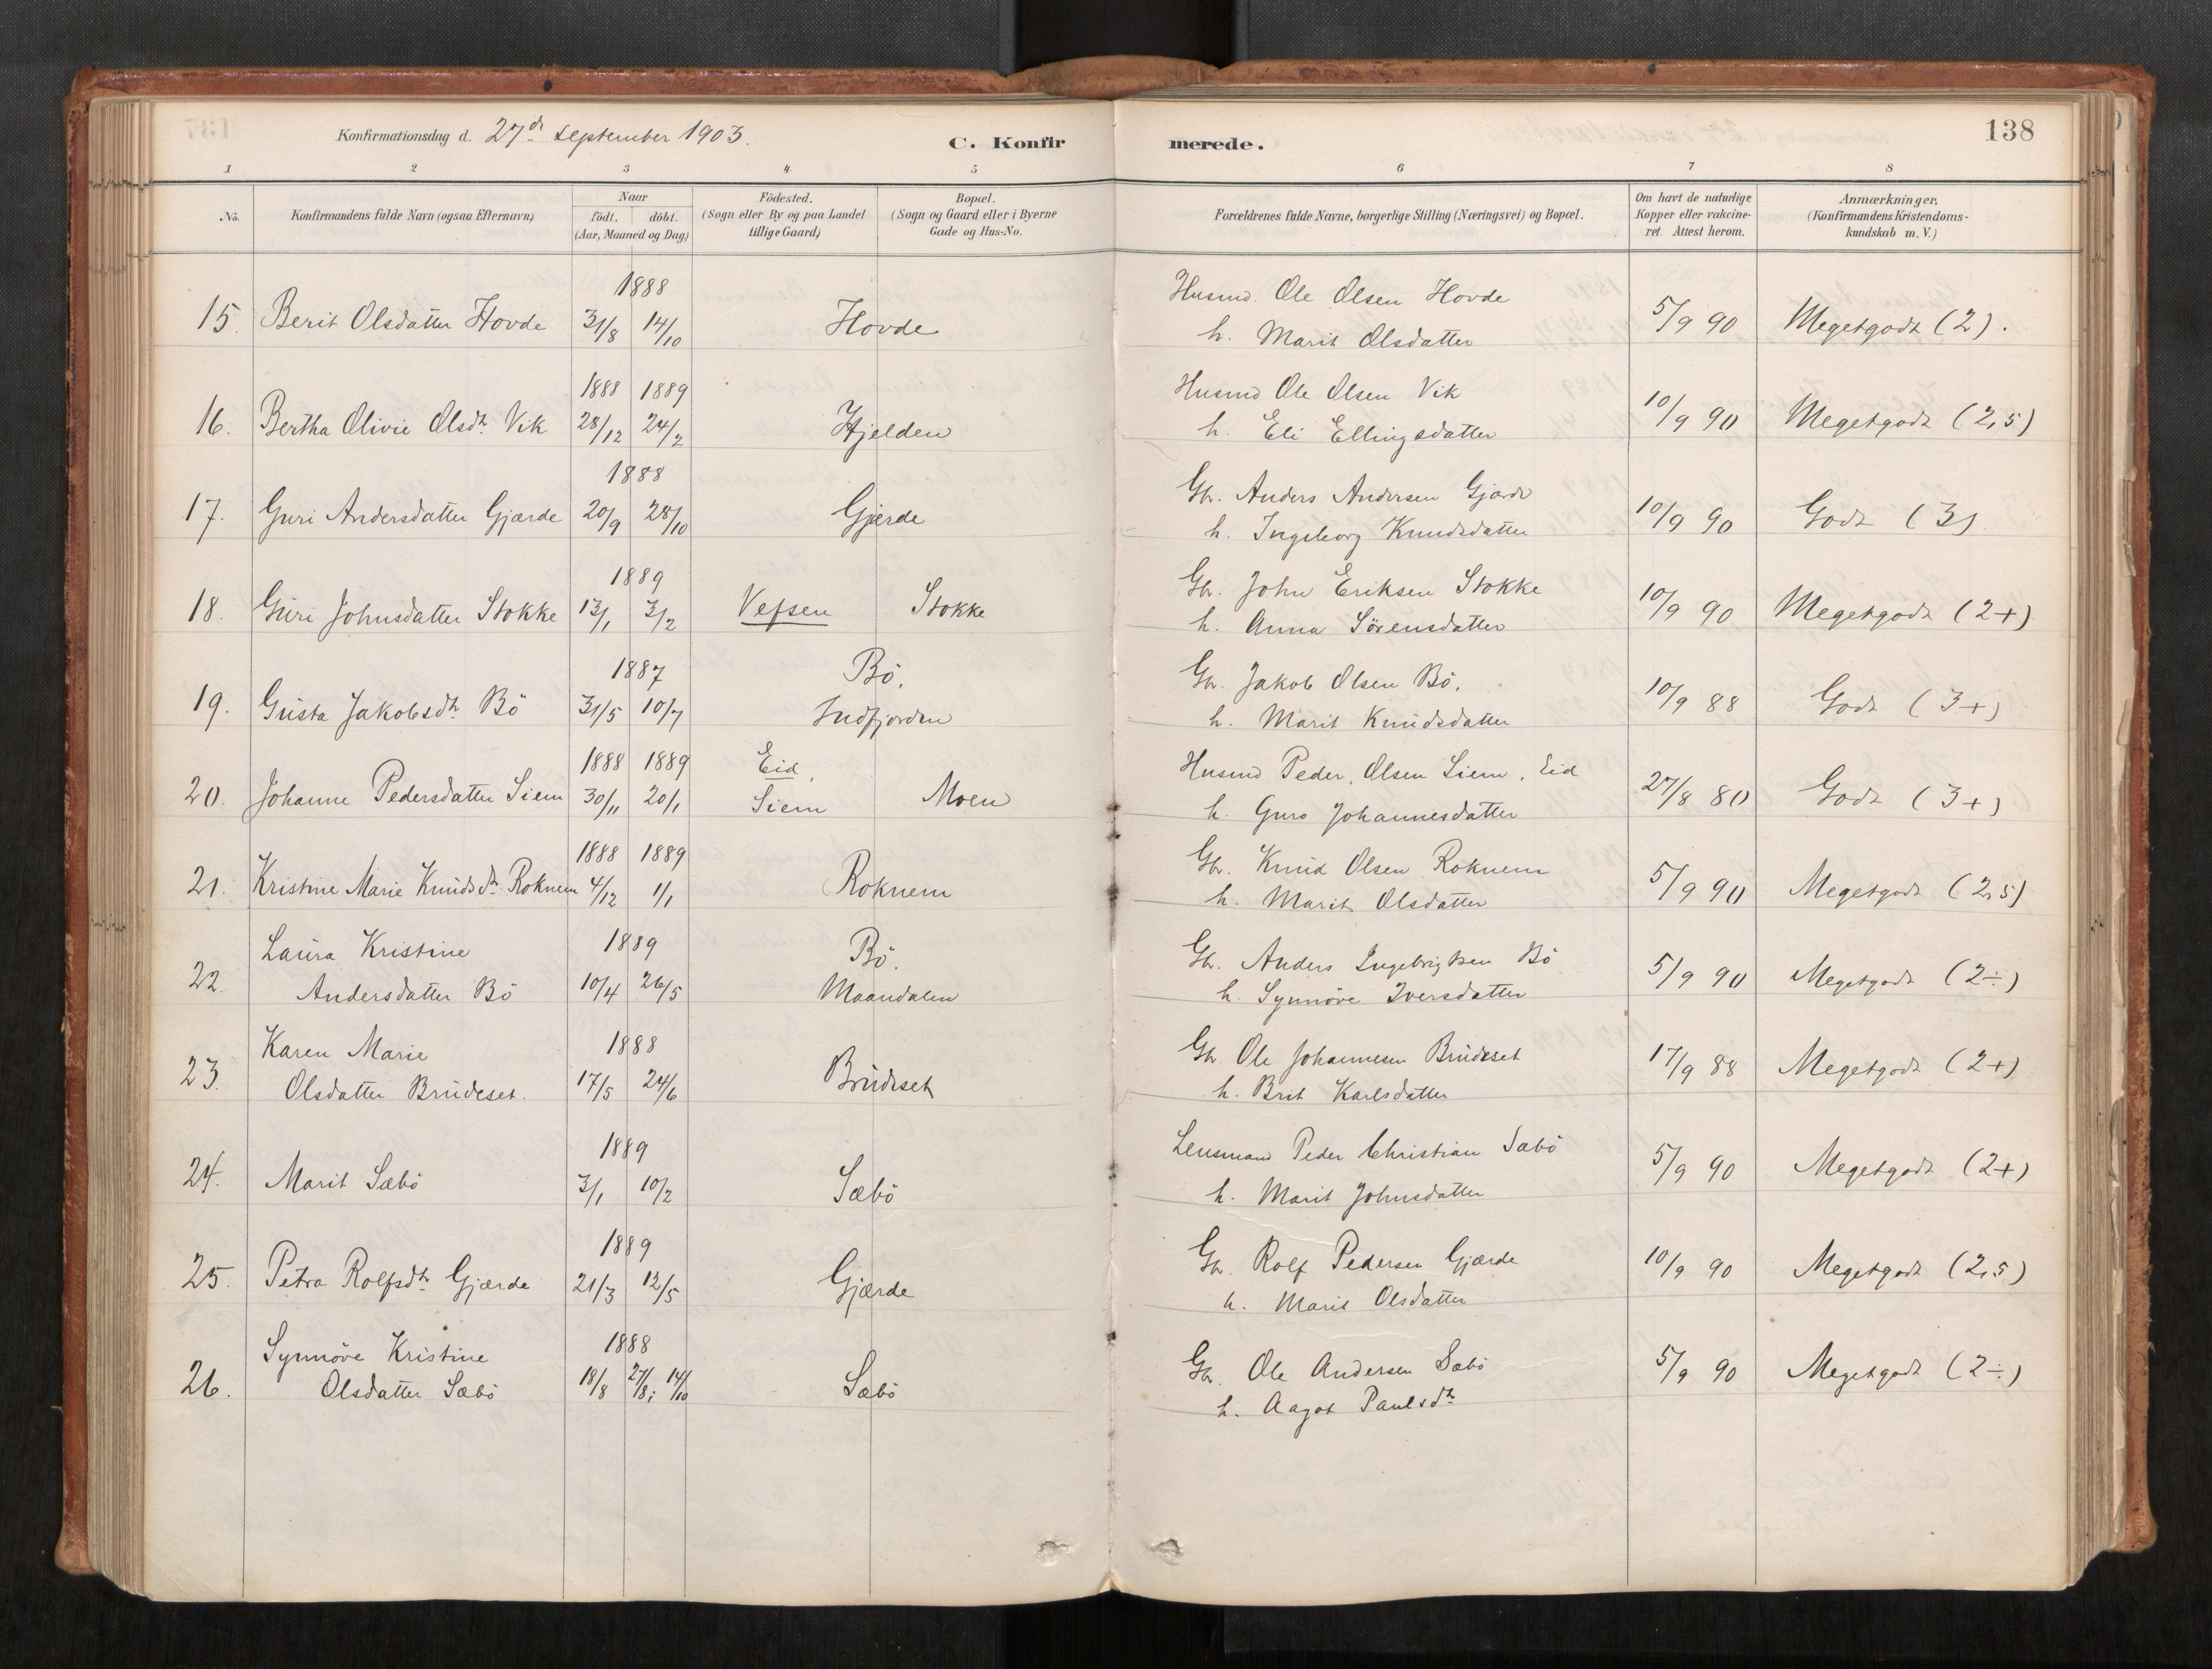 Konfirmationsdag d. 27de September 1903.
C. Konfirmerede.
138
1 2 3 4 5 6 7 8
No.
Konfirmandens fulde Navn (ogsaa Efternavn)
Naar
födt. döbt.
(Aar, Maaned og Dag)
Födested.
(Sogn eller By og paa Landet
tillige Gaard)
Bopæl.
(Sogn og Gaard eller i Byerne
Gade og Hus-No.
Forældrenes fulde Navne, borgerlige Stilling (Næringsvei) og Bopæl.
Om havt de naturlige
Kopper eller vakcine-
ret. Attest herom.
Anmærkninger,
(Konfirmandens Kristendoms-
kundskab m. V.)
1888
15. Berit Olsdatter Hovde 31/8 14/10 Hovde
Husmd. Ole Olsen Hovde
h. Marit Olsdatter
5/9 90 Megetgodt (2).
1888 1889
16. Bertha Olivie Olsdtr Vik 28/12 24/2 Hjelden
Husmd Ole Olsen Vik
h. Eli Ellingsdatter
10/9 90 Megetgodt (2,5)
1888
17. Guri Andersdatter Gjærde 20/9 28/10 Gjerde
Gbr. Anders Andersen Gjærde
h. Ingeborg Knudsdatter
10/9 90 Godt (3)
1889
18. Guri Johnsdatter Stokke 13/1 3/2 Vefsen Stokke
Gbr. John Eriksen Stokke
h. Anna Sörensdatter
10/9 90 Megetgodt (2+)
1887
19. Gusta Jakobsdtr Bö 31/5 10/7 Bö,
Indfjorden
Gbr. Jakob Olsen Bö.
h. Marit Knudsdatter
10/9 88 Godt (3+)
1888 1889
20. Johanne Pedersdatter Siem 30/11 20/1 Eid,
Siem Moen
Husmd Peder Olsen Siem, Eid
h. Guro Johannesdatter
27/8 80 Godt (3+)
1888 1889
21. Kristine Marie Knudsdtr Roknem 4/12 1/1 Roknem
Gbr. Knud Olsen Roknem
h. Marit Olsdatter
5/9 90 Megetgodt (2,5)
1889
22. Laura Kristine
Andersdatter Bö 10/4 26/5 Bö.
Maandalen
Gbr. Anders Ingebrigtsen Bö
h. Synnöve Iversdatter
5/9 90 Megetgodt (2÷)
1888
23. Karen Marie
Olsdatter Brudeset. 17/5 24/6 Brudeset
Gbr Ole Johannesen Brudeset
h. Brit Karlsdatter
17/9 88 Megetgodt (2+)
1889
24. Marit Sæbö 3/1 10/2 Sæbö
Lensmand Peder Christian Sæbö
h. Marit Johnsdatter
5/9 90 Megetgodt (2+)
1889
25. Petra Rolfsdtr Gjærde 21/3 12/5 Gjærde
Gbr. Rolf Pedersen Gjærde
h. Marit Olsdatter
10/9 90 Megetgodt (2,5)
1888
26. Synnöve Kristine
Olsdatter Sæbö 18/8 27/8; 14/10 Sæbö
Gbr. Ole Andersen Sæbö
h. Aagot Paulsdtr
5/9 90 Megetgodt (2÷)